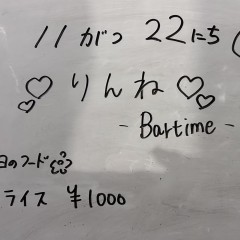 11がつ 22にち
♡りんね♡
- Bartime -
日のフード
ライス ¥1000